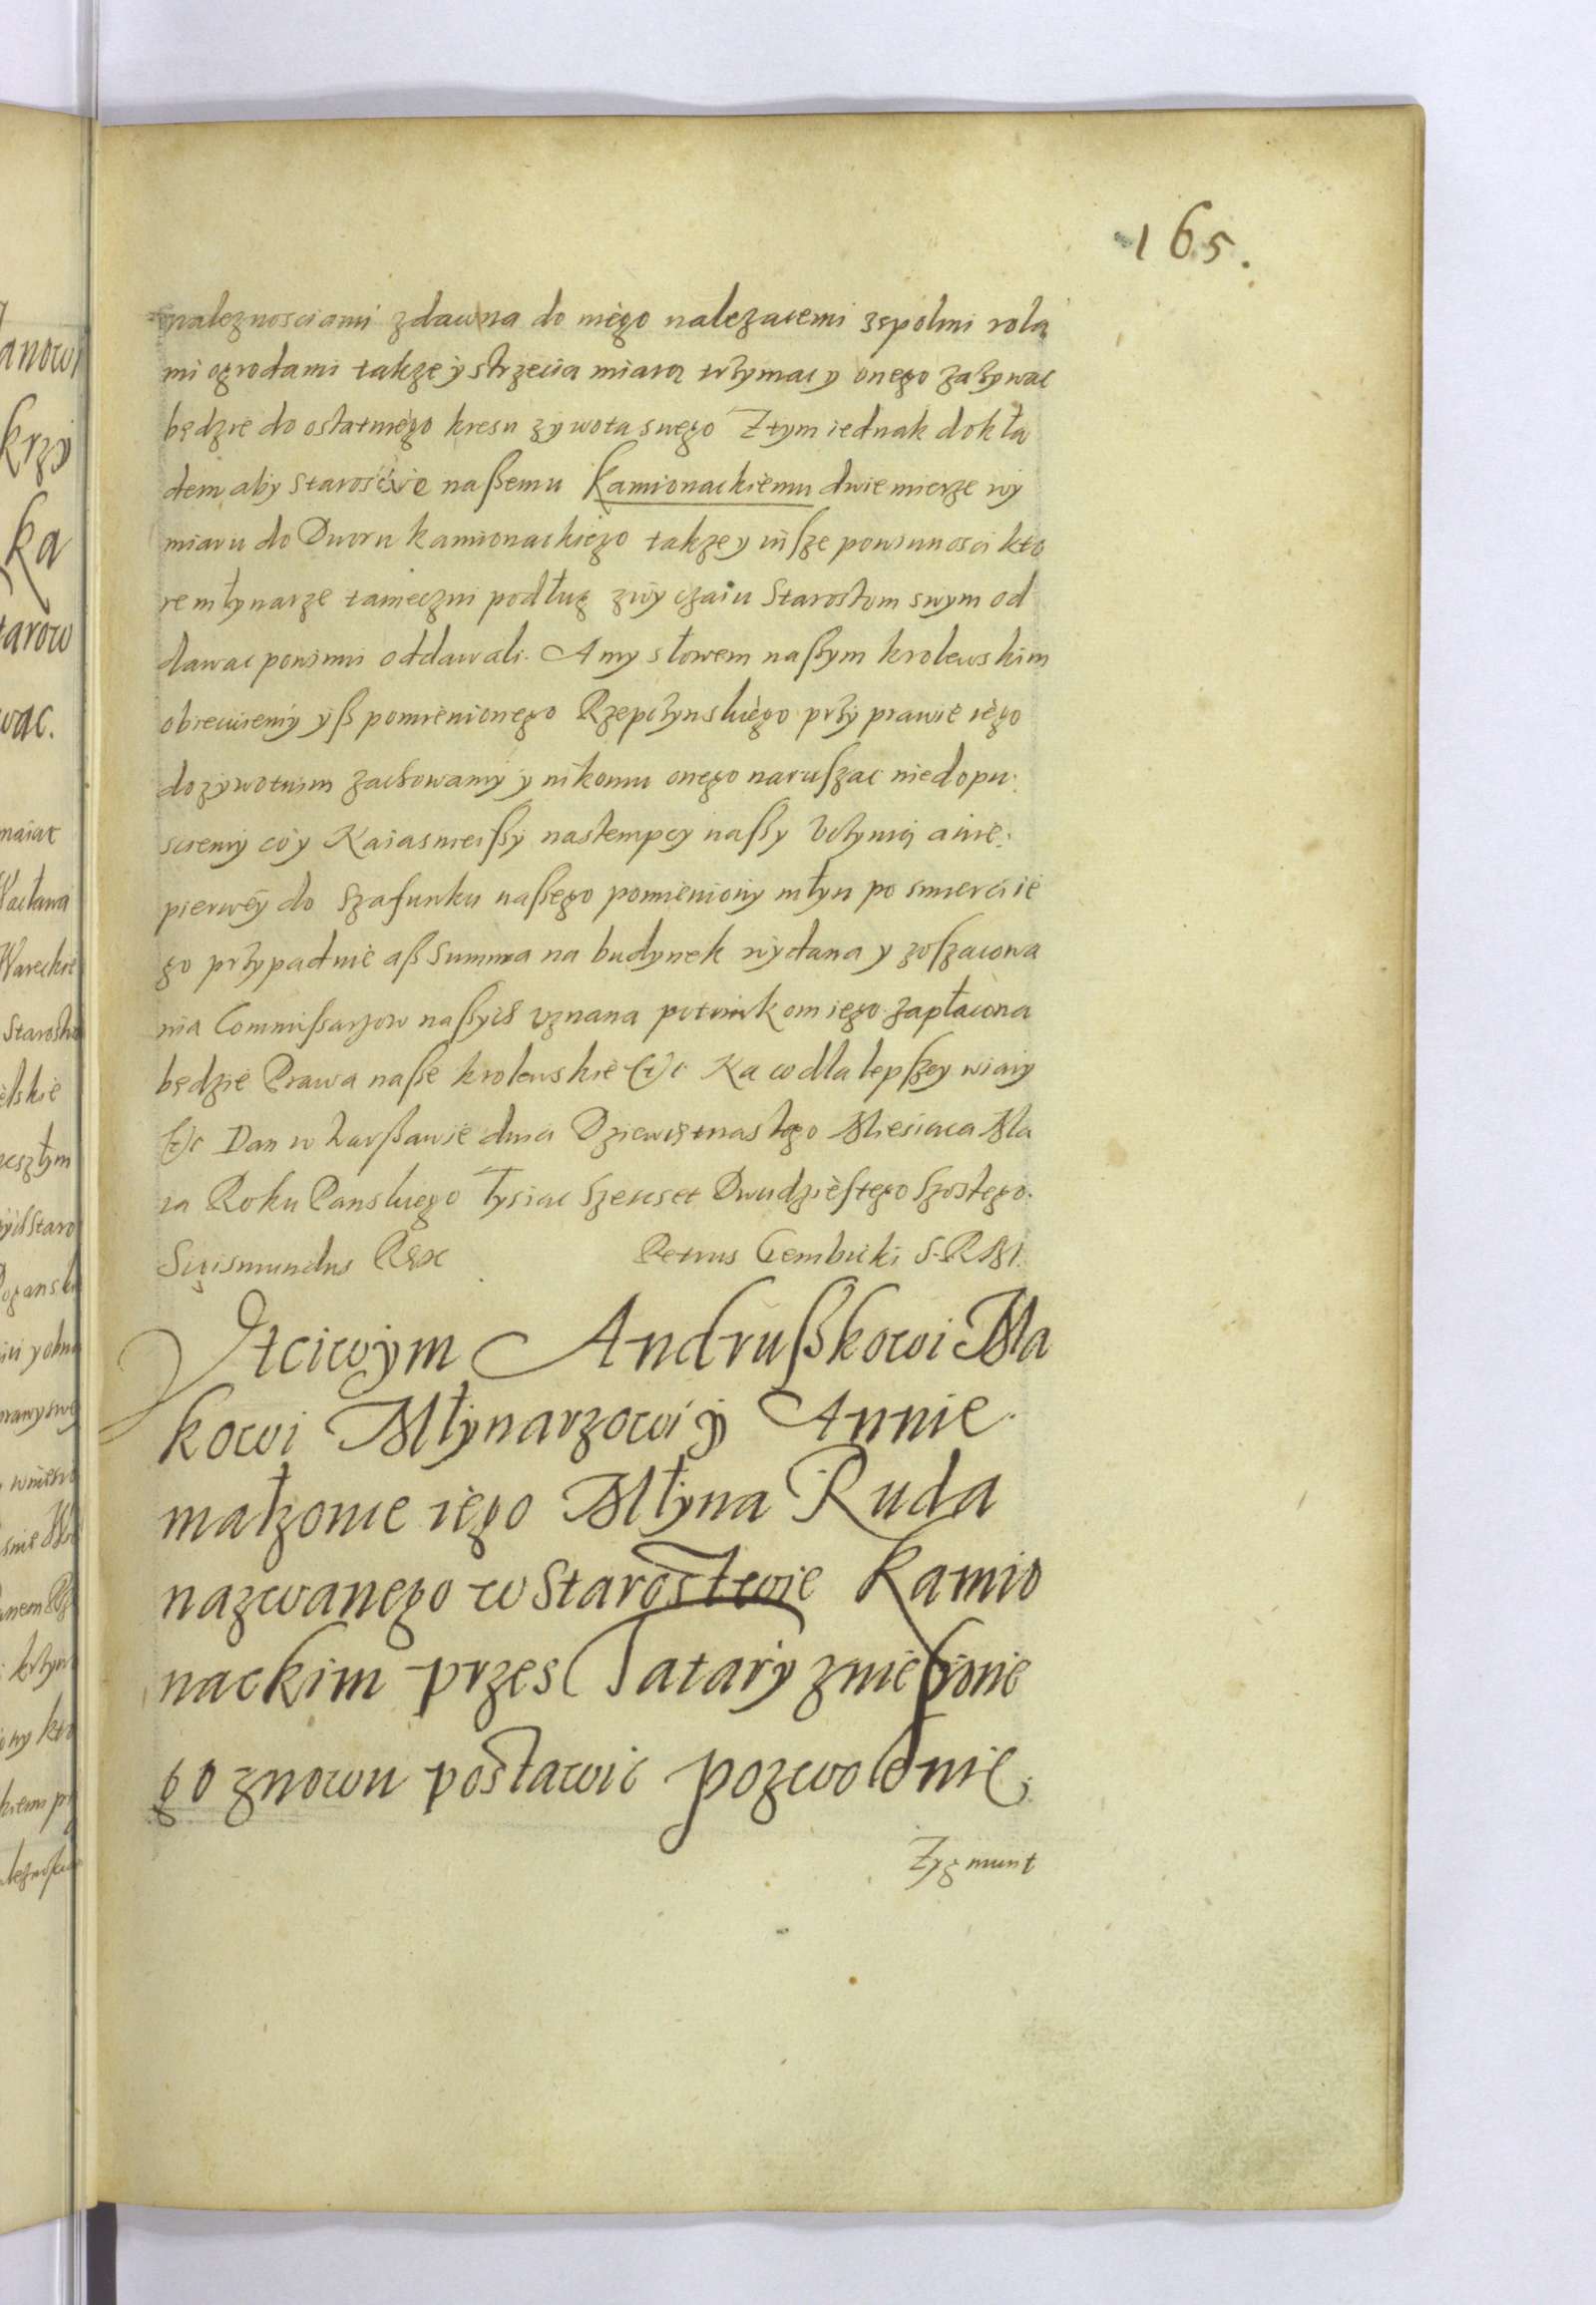 165.
naleznosciami zdawna do niego nalezacemi zpolmi rola
mi ogrodami takze y strzecia miara trzymac y onego zazywac
będzie do ostatniego kresu zywota swego Ztym iednak dokła
dem aby staroscie naßemu Kamionackiemu dwie mierze wy
miaru do Dworu Kamionackiego takze y insze powinnosci kto
re młynarze tameczni podług zwyczaiu Starostom swym od
dawac powinni oddawali. A my słowem naßym krolewskim
obiecuiemy yß pomienionego Rzepczynskiego przy prawie iego
dozywotnim zachowamy y nikomu onego naruszac niedopu
sciemy co y Naiasnieißy nastempcy naßy Uczynią a nie
pierwey do szafunku naßego pomieniony młyn po smierci ie
go przypadnie aß summa na budynek wydana y zoszacowa
nia Commißarzow naßych uznana potomkom iego zapłacona
będzie Prawa naße krolewskie (t)c Na co dla lepszey wiary
(t)c Dan w Warßawie dnia Dziewiętnastego Miesiaca Ma
ia Roku Panskiego Tysiac Szescset Dwudziestego Szostego.
Sigismundus Rex Petrus Gembicki S. R. M.
Utciwym Andrußkowi Ma
kowi Młynarzowi y Annie
małzonce iego Młyna Ruda
nazwanego w Starostwie Kamio
nackim przes Tatary znießione
go znowu postawic pozwolenie
Zygmunt